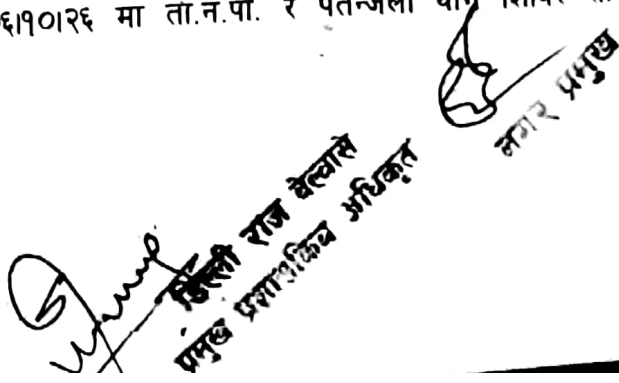 ६।१०।२६ मा ता.न.पा. र पतन्जली योग शिविर
नगर प्रमुख
डिल्ली राज बेल्वासे
प्रमुख प्रशासकिय अधिकृत